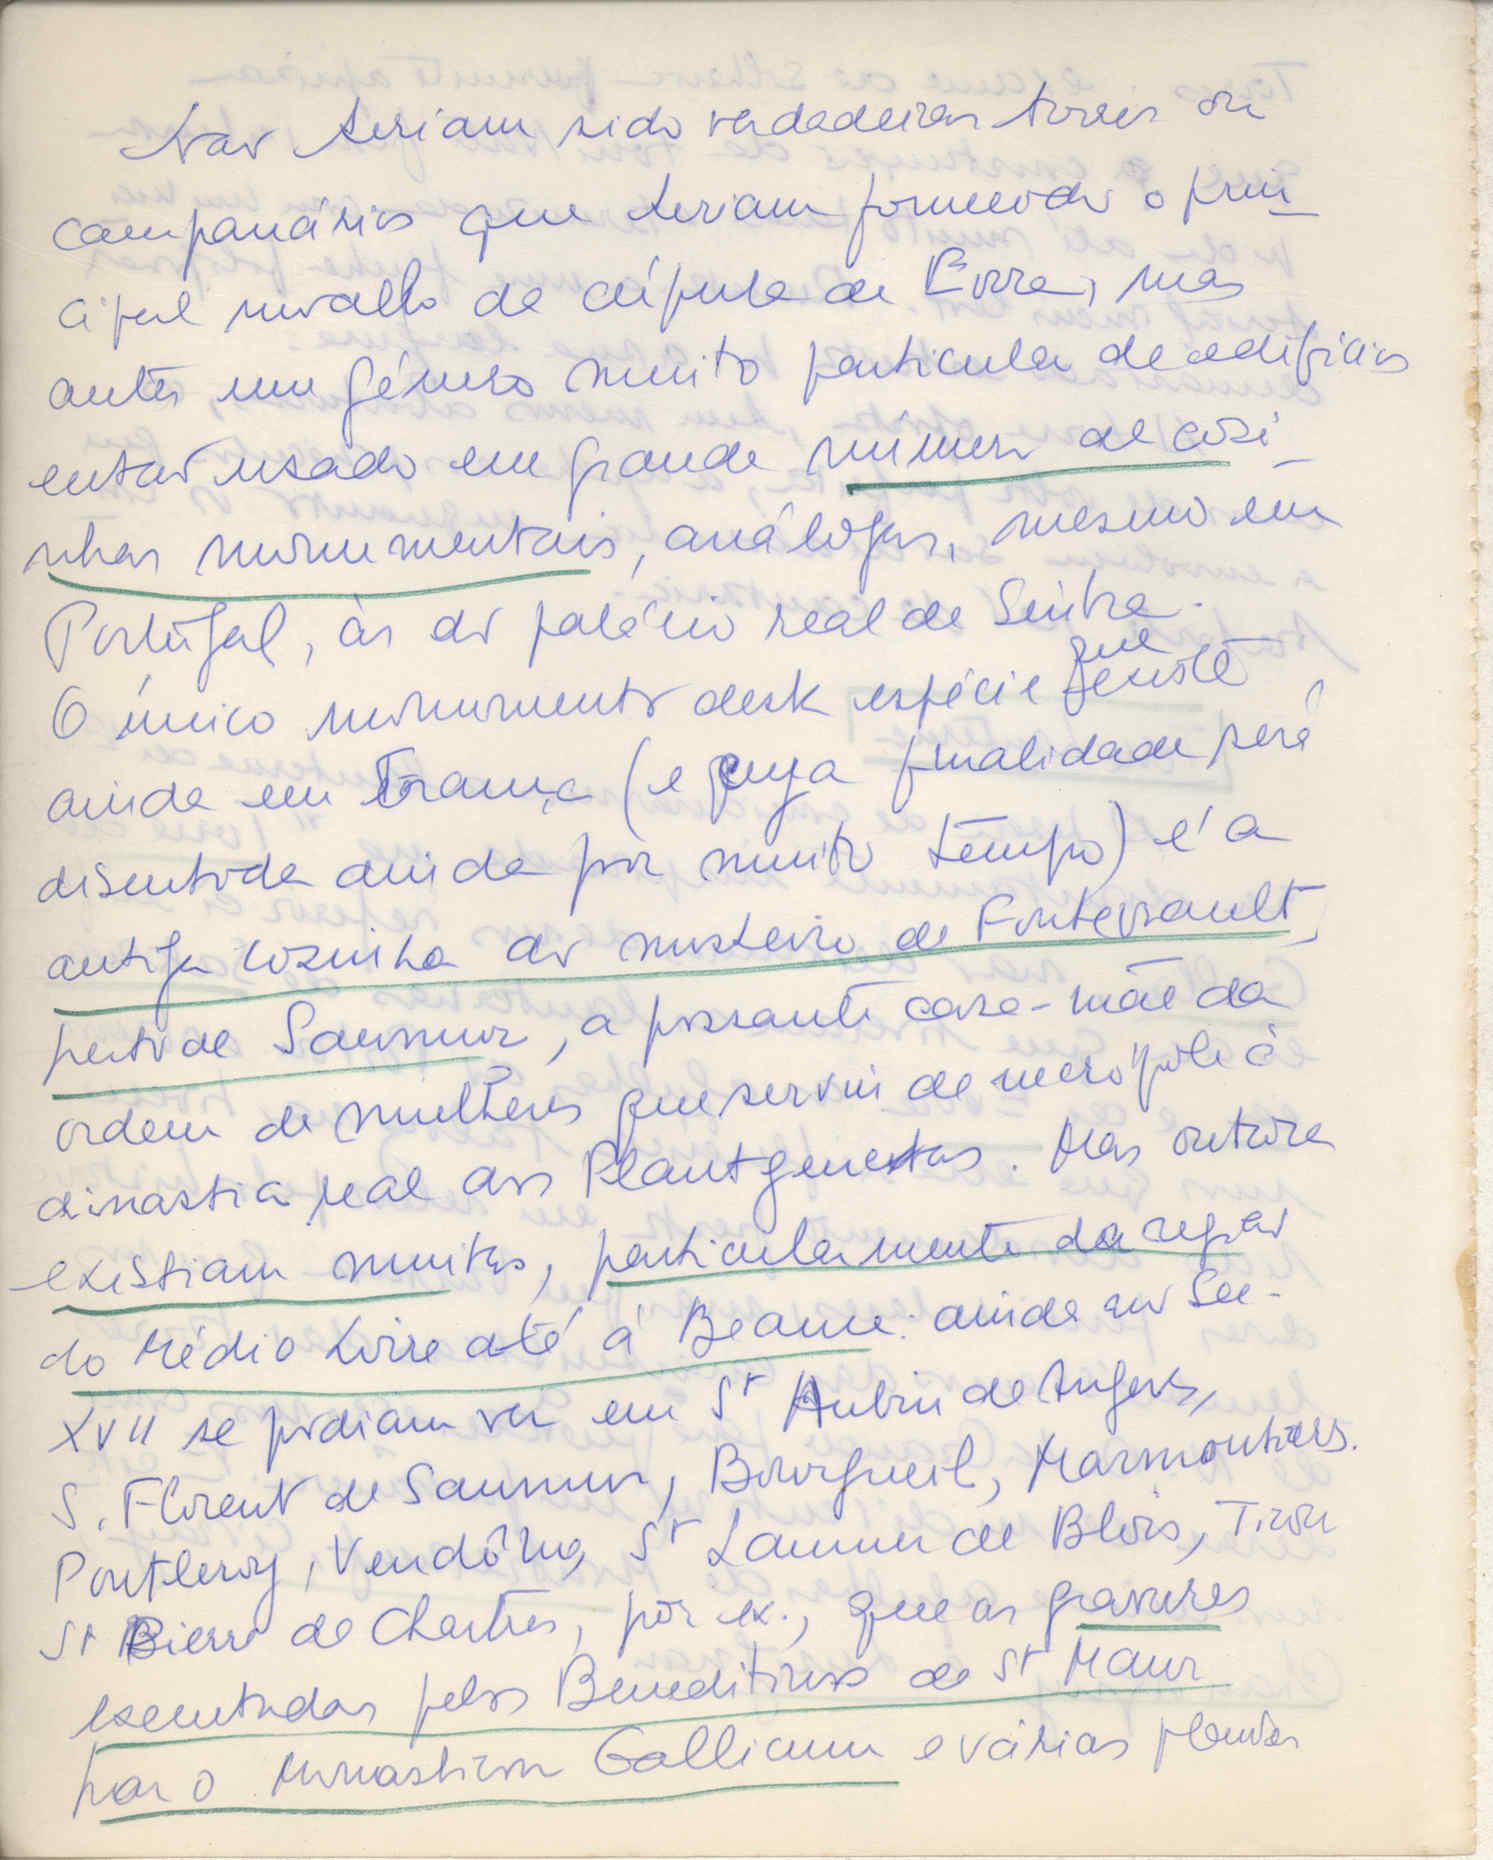 Não teriam sido verdadeiras torres ou
campanários que teriam fornecido o prin_
cipal modelo da cúpula de Évora, mas
antes um género muito particular de edifícios
então usado em grande número de cosi_
nhas monumentais, análogas, mesmo em
Portugal, às do palácio real de Sintra.
O único monumento desta espécie que existe
ainda em França (e cuja finalidade será
discutida ainda por muito tempo) é a
antiga cosinha do mosteiro de Fontevrault,
perto de Saumur, a possante casa-mãe da
ordem de mulheres que serviu de necrópole à
dinastia real dos Plantgenetas. Mas outrora
existiam muitas, particularmente da região
do Médio Loire até à Beauce: ainda no Séc.
XVII se podiam ver em St Aubin de Angers,
S. Florent de Saumur, Bourgueil, Marmoutiers.
Pontlevoy, Vendôme, St Laumer de Blois, Tiron
St Pierre de Chartres, por ex., que as gravures
executadas pelos Beneditinos de St Maur
para o Monasticon Gallicanum e várias plantas